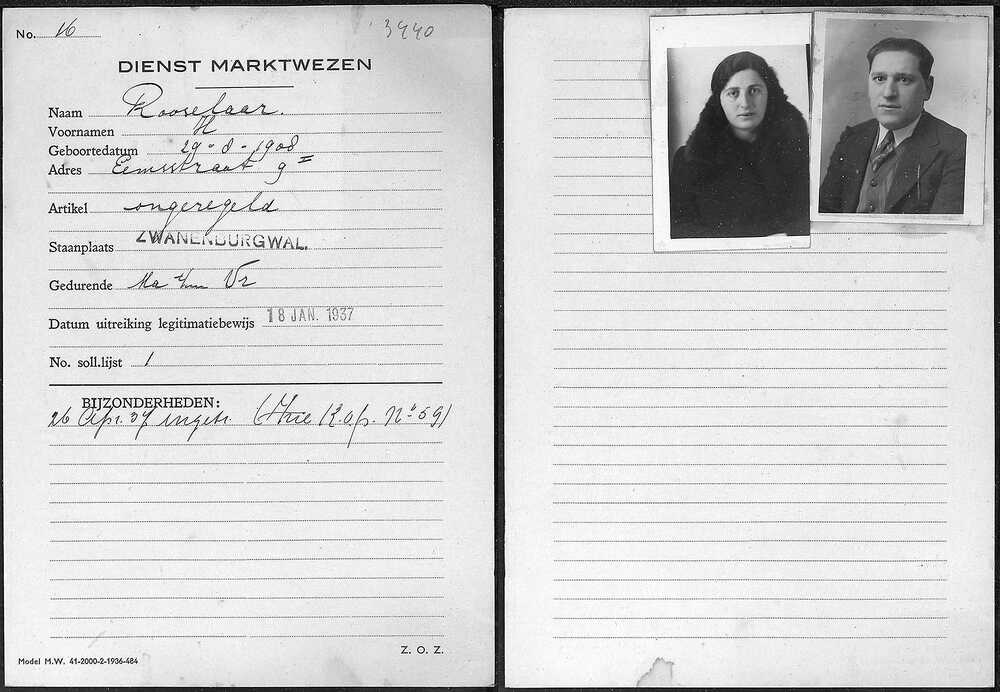 No. 16
3440
DIENST MARKTWEZEN
Naam Rooselaar.
Voornamen H
Geboortedatum 29-8-1908
Adres Eemsstraat 9 II
Artikel ongeregeld
Staanplaats ZWANENBURGWAL.
Gedurende Ma t/m Vr
Datum uitreiking legitimatiebewijs 18 JAN. 1937
No. soll.lijst 1
BIJZONDERHEDEN:
26 Apr. 37 ingetr. (Zie K.o.p. No 59)
Z. O. Z.
Model M.W. 41-2000-2-1936-484